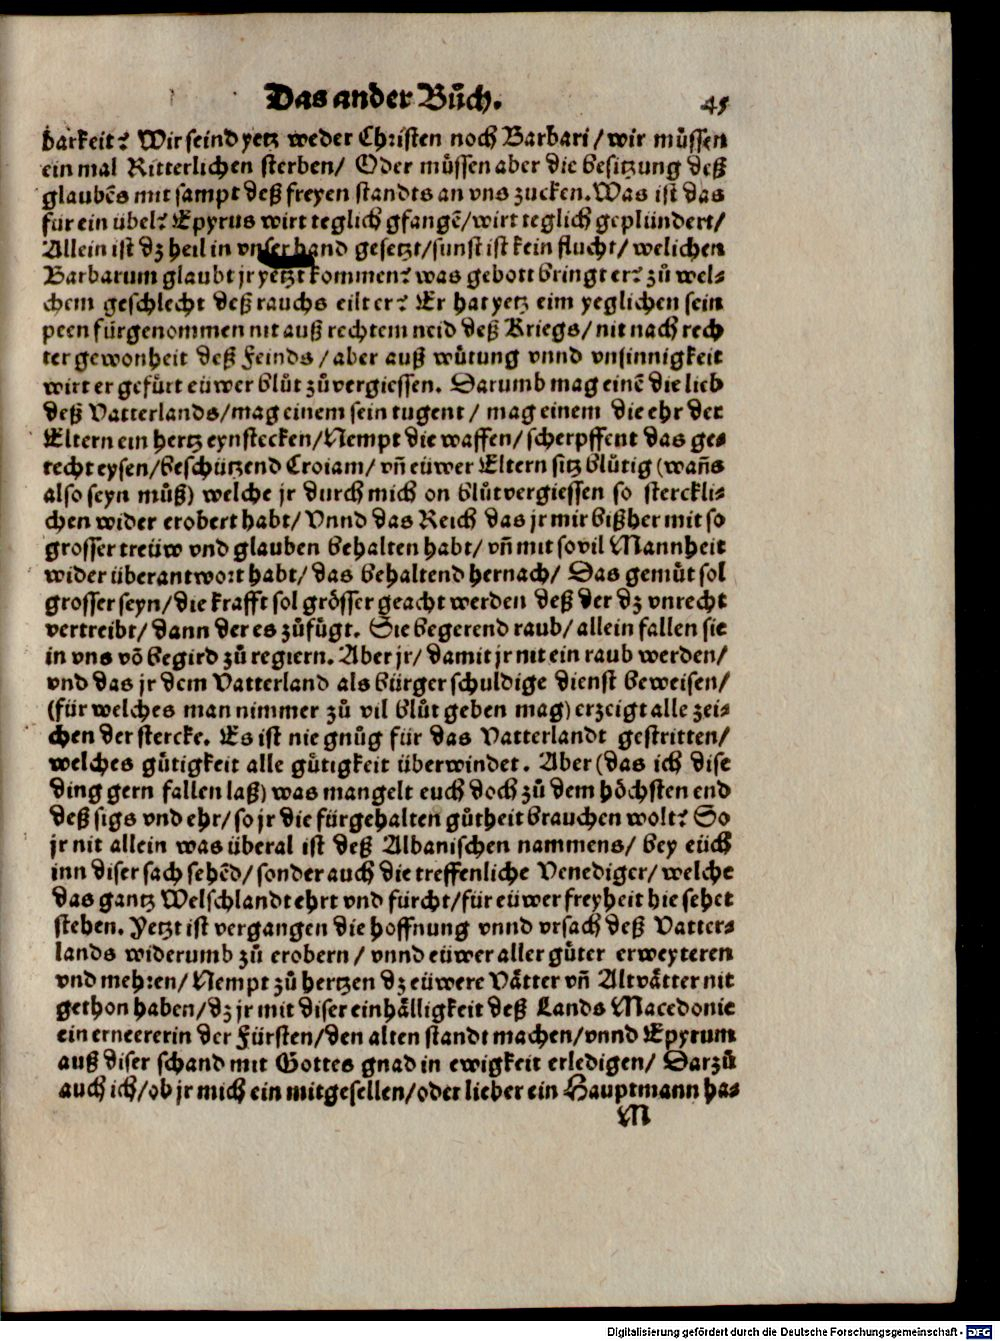 Das ander Bůch. 45
barkeit? Wir seind yetz weder Christen noch Barbari / wir müssen
ein mal Ritterlichen sterben / Oder müssen aber die besitzung deß
glaubẽs mit sampt deß freyen standts an vns zucken. Was ist das
für ein übel? Epyrus wirt teglich gfangẽ / wirt teglich geplündert /
Allein ist dz heil in vnser hand gesetzt / sunst ist kein flucht / welichen
Barbarum glaubt jr yetzt kommen? was gebott bringt er? zů wel-
chem geschlecht deß rauchs eilt er? Er hat yetz eim yeglichen sein
peen fürgenommen nit auß rechtem neid deß Kriegs / nit nach rech
ter gewonheit deß Feinds / aber auß wůtung vnnd vnsinnigkeit
wirt er gefürt eüwer blůt zůvergiessen. Darumb mag einẽ die lieb
deß Vatterlands / mag einem sein tugent / mag einem die ehr der
Eltern ein hertz eynstecken / Nempt die waffen / scherpffent das ge-
recht eysen / beschützend Croiam / vñ eüwer Eltern sitz blůtig (wañs
also seyn můß) welche jr durch mich on blůtvergiessen so sterckli-
chen wider erobert habt / Vnnd das Reich das jr mir bißher mit so
grosser treüw vnd glauben behalten habt / vñ mit sovil Mannheit
wider überantwort habt / das behaltend hernach / Das gemůt sol
grosser seyn / die krafft sol grösser geacht werden deß der dz vnrecht
vertreibt / dann der es zůfügt. Sie begerend raub / allein fallen sie
in vns võ begird zů regiern. Aber jr / damit jr nit ein raub werden /
vnd das jr dem Vatterland als bürger schuldige dienst beweisen /
(für welches man nimmer zů vil blůt geben mag) erzeigt alle zei-
chen der stercke. Es ist nie gnůg für das Vatterlandt gestritten /
welches gütigkeit alle gütigkeit überwindet. Aber (das ich dise
ding gern fallen laß) was mangelt euch doch zů dem höchsten end
deß sigs vnd ehr / so jr die fürgehalten gůtheit brauchen wolt? So
jr nit allein was überal ist deß Albanischen nammens / bey eüch
inn diser sach sehẽd / sonder auch die treffenliche Venediger / welche
das gantz Welschlandt ehrt vnd fürcht / für eüwer freyheit hie sehet
stehen. Yetzt ist vergangen die hoffnung vnnd vrsach deß Vatter-
lands widerumb zů erobern / vnnd eüwer aller gůter erweyteren
vnd mehren / Nempt zů hertzen dz eüwere Vätter vñ Altvätter nit
gethon haben / dz jr mit diser einhälligkeit deß Lands Macedonie
ein erneererin der Fürsten / den alten standt machen / vnnd Epyrum
auß diser schand mit Gottes gnad in ewigkeit erledigen / Darzů
auch ich / ob jr mich ein mitgesellen / oder lieber ein Hauptmann ha-
M
Digitalisierung gefördert durch die Deutsche Forschungsgemeinschaft - DFG